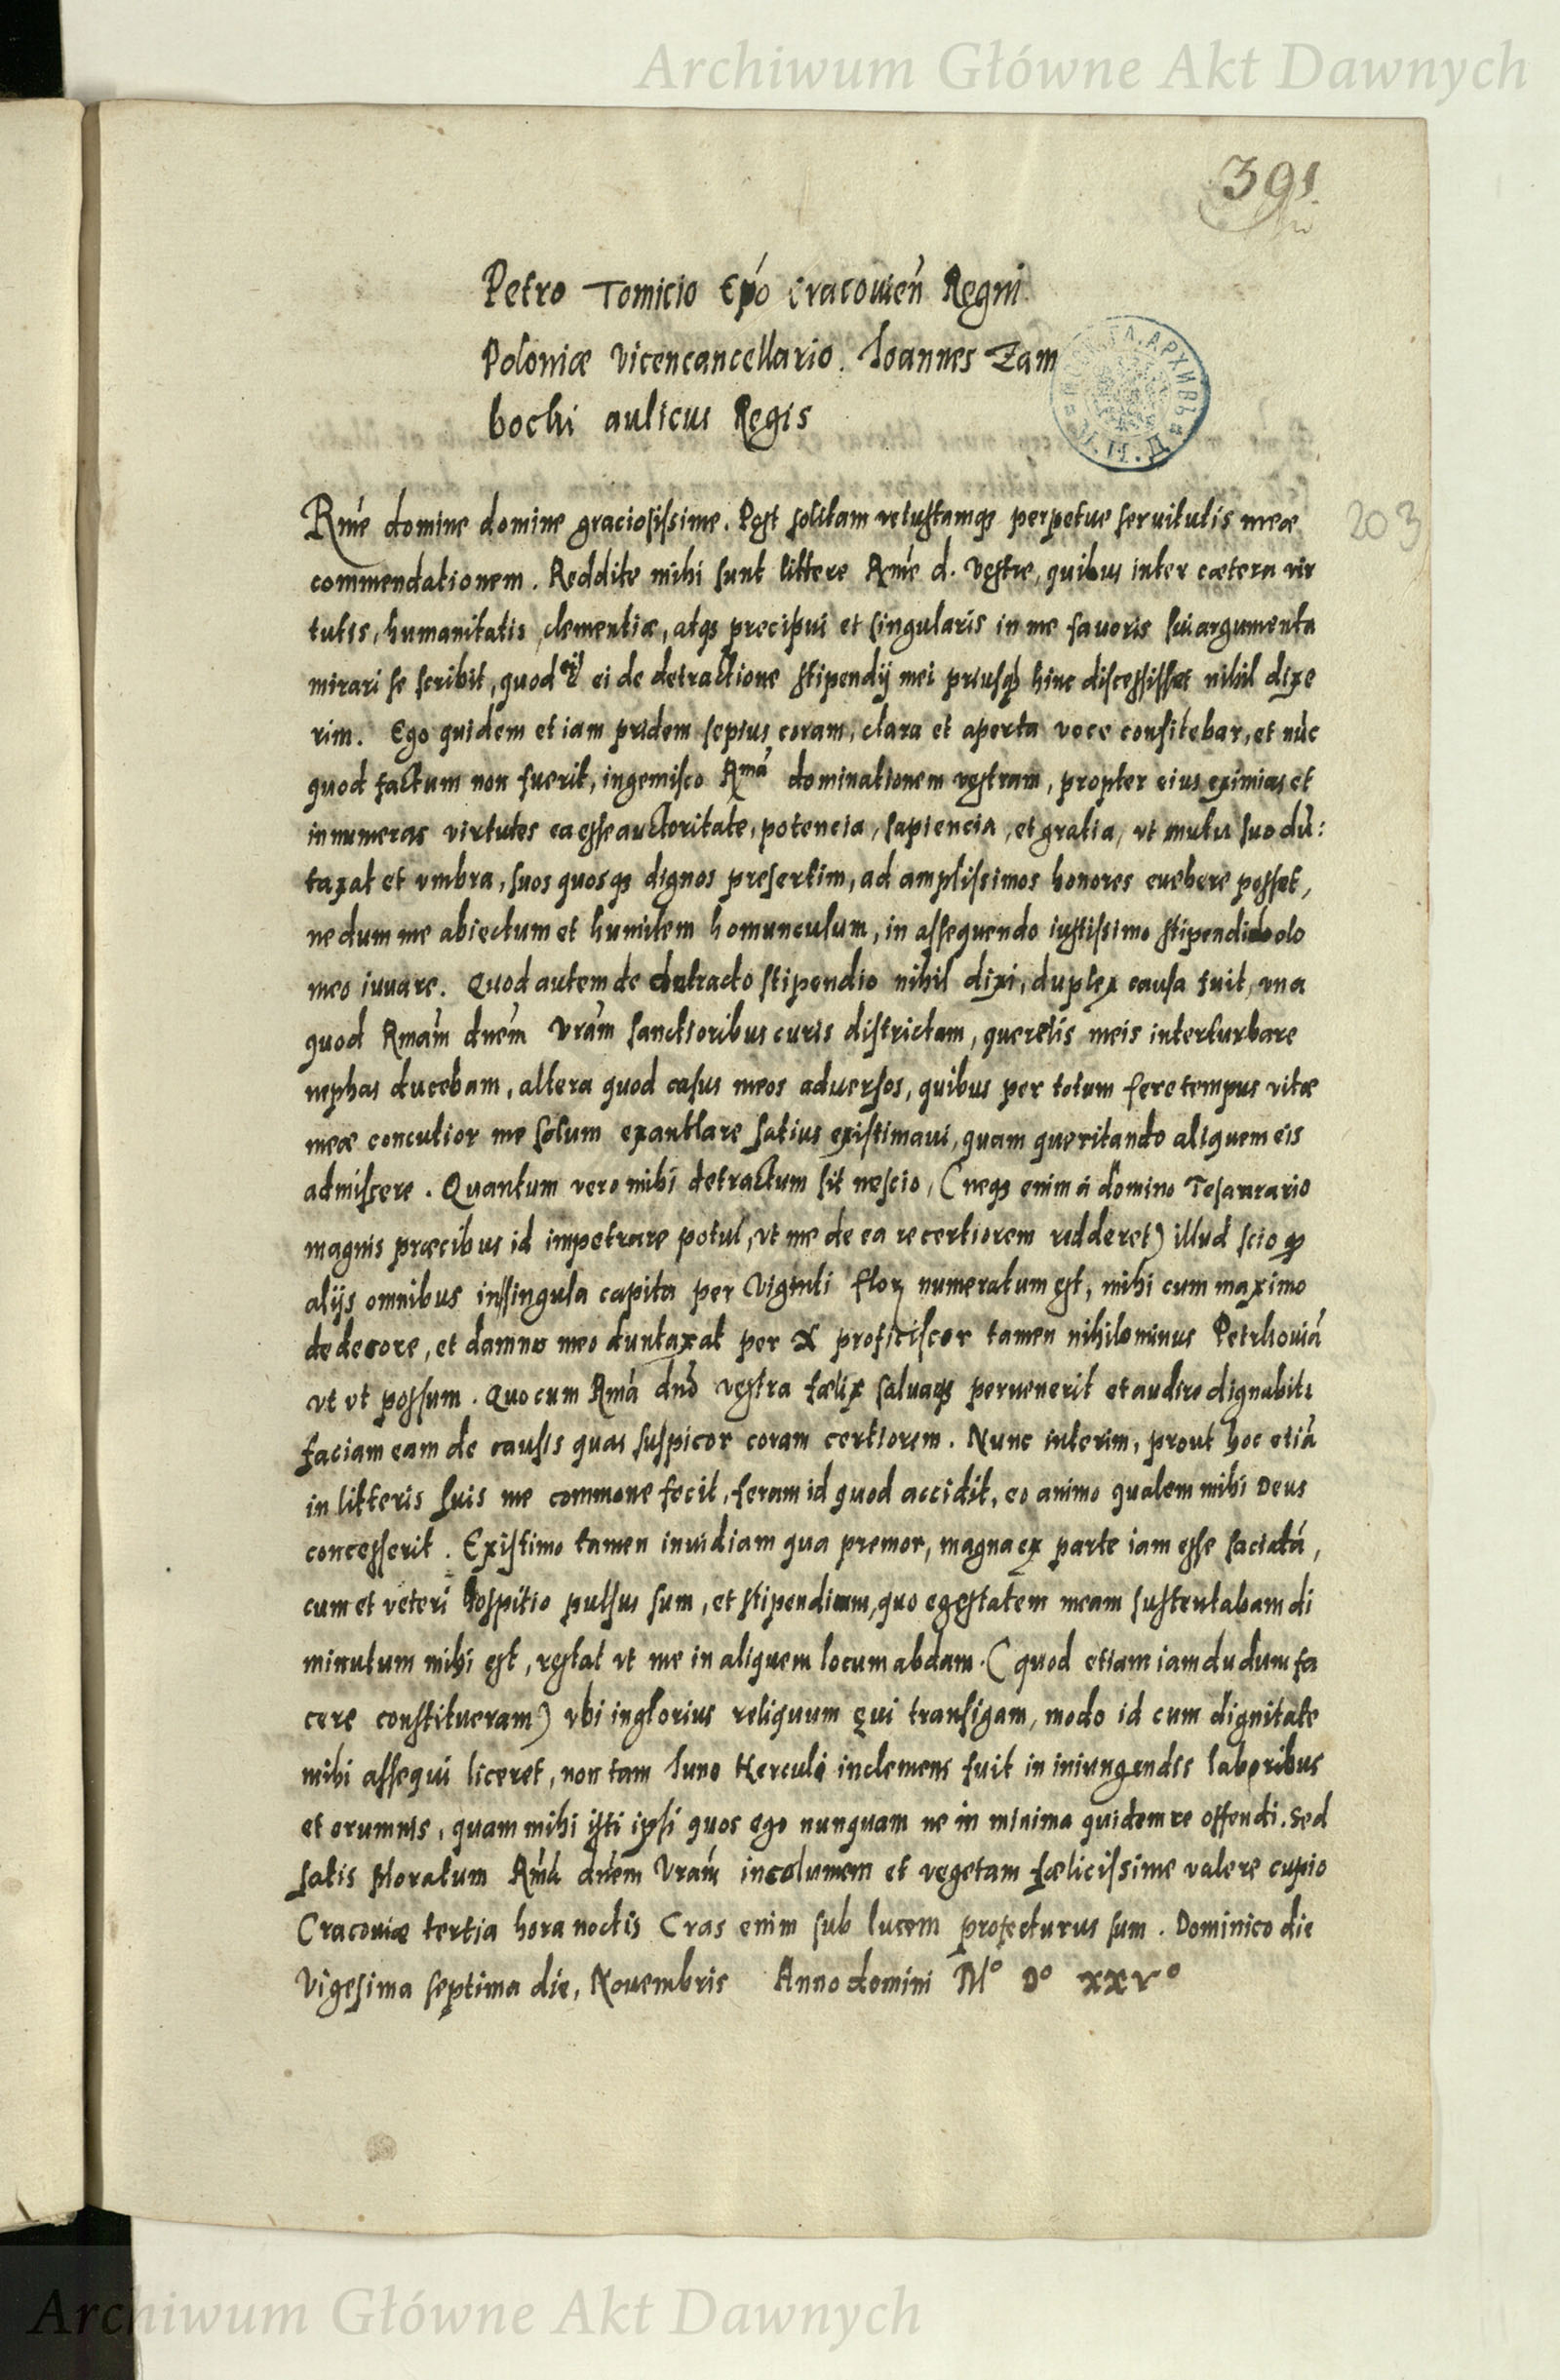 Archiwum Główne Akt Dawnych
391
Petro Tomicio Epo Cracovien Regni
Poloniæ Vicencancellario. Ioannes Zam
bochi aulicus Regis
203
Rme domine domine graciosissime. Post solitam vetustamqs perpetue servitutis meæ
commendationem. Reddite mihi sunt littere Rme d. Vestre, quibus inter cætera vir
tutis, humanitatis, clementiæ, atqs precipui et singularis in me favoris sui argumenta
mirari se scribit, quod ei de detractione stipendij mei priusq hinc discessisset nihil dixe
rim. Ego quidem et iam pridem sepius coram, clara et aperta voce confitebar, et nuc
quod factum non fuerit, ingemisco Rma dominationem vestram, propter eius eximias et
innumeras virtutes ea esse auctoritate, potencia, sapiencia, et gratia, vt nutu suo du:
taxat et vmbra, suos quosqs dignos presertim, ad amplissimos honores evehere posset,
nedum me abiectum et humilem homunculum, in assequendo iustissimo stipendiolo
meo iuvare. Quod autem de detracto stipendio nihil dixi, duplex causa fuit, vna
quod Rmam dnem Vram sanctioribus curis districtam, querelis meis interturbare
nephas ducebam, altera quod casus meos adversos, quibus per totum fere tempus vitæ
meæ concutior me solum exantlare satius existimavi, quam queritando aliquem eis
admiscere. Quantum vero mihi detractum sit nescio, (neqs enim a domino Tesaurario
magnis præcibus id impetrare potui, vt me de ea re certiorem redderet) illud scio q
alijs omnibus in singula capita per Viginti flor numeratum est, mihi cum maximo
dedecore, et damno meo duntaxat per X proficiscor tamen nihilominus Petrkoviã
vt vt possum. Quo cum Rma dno vestra fælix salvaqs pervenerit et audire dignabitr
faciam eam de causis quas suspicor coram certiorem. Nunc interim, prout hoc etiã
in litteris suis me commone fecit, feram id quod accidit, eo animo qualem mihi Deus
concesserit. Existimo tamen invidiam qua premor, magna ex parte iam esse saciatã,
cum et veteri hospitio pulsus sum, et stipendium, quo egestatem meam sustentabam di
minutum mihi est, restat vt me in aliquem locum abdam. (quod etiam iamdudum fa
cere constitueram) vbi inglorius reliquum ęui transigam, modo id cum dignitate
mihi assequi liceret, non tam Iuno Herculi inclemens fuit in iniungendis laboribus
et erumnis, quam mihi isti ipsi quos ego nunquam ne in minima quidem re offendi. Sed
satis ploratum Rma dnem Vram incolumem et vegetam fælicissime valere cupio
Cracoviæ tertia hora noctis Cras enim sub lucem profecturus sum. Dominico die
Vigesima septima die, Novembris Anno domini M° D° xxv°
Archiwum Główne Akt Dawnych